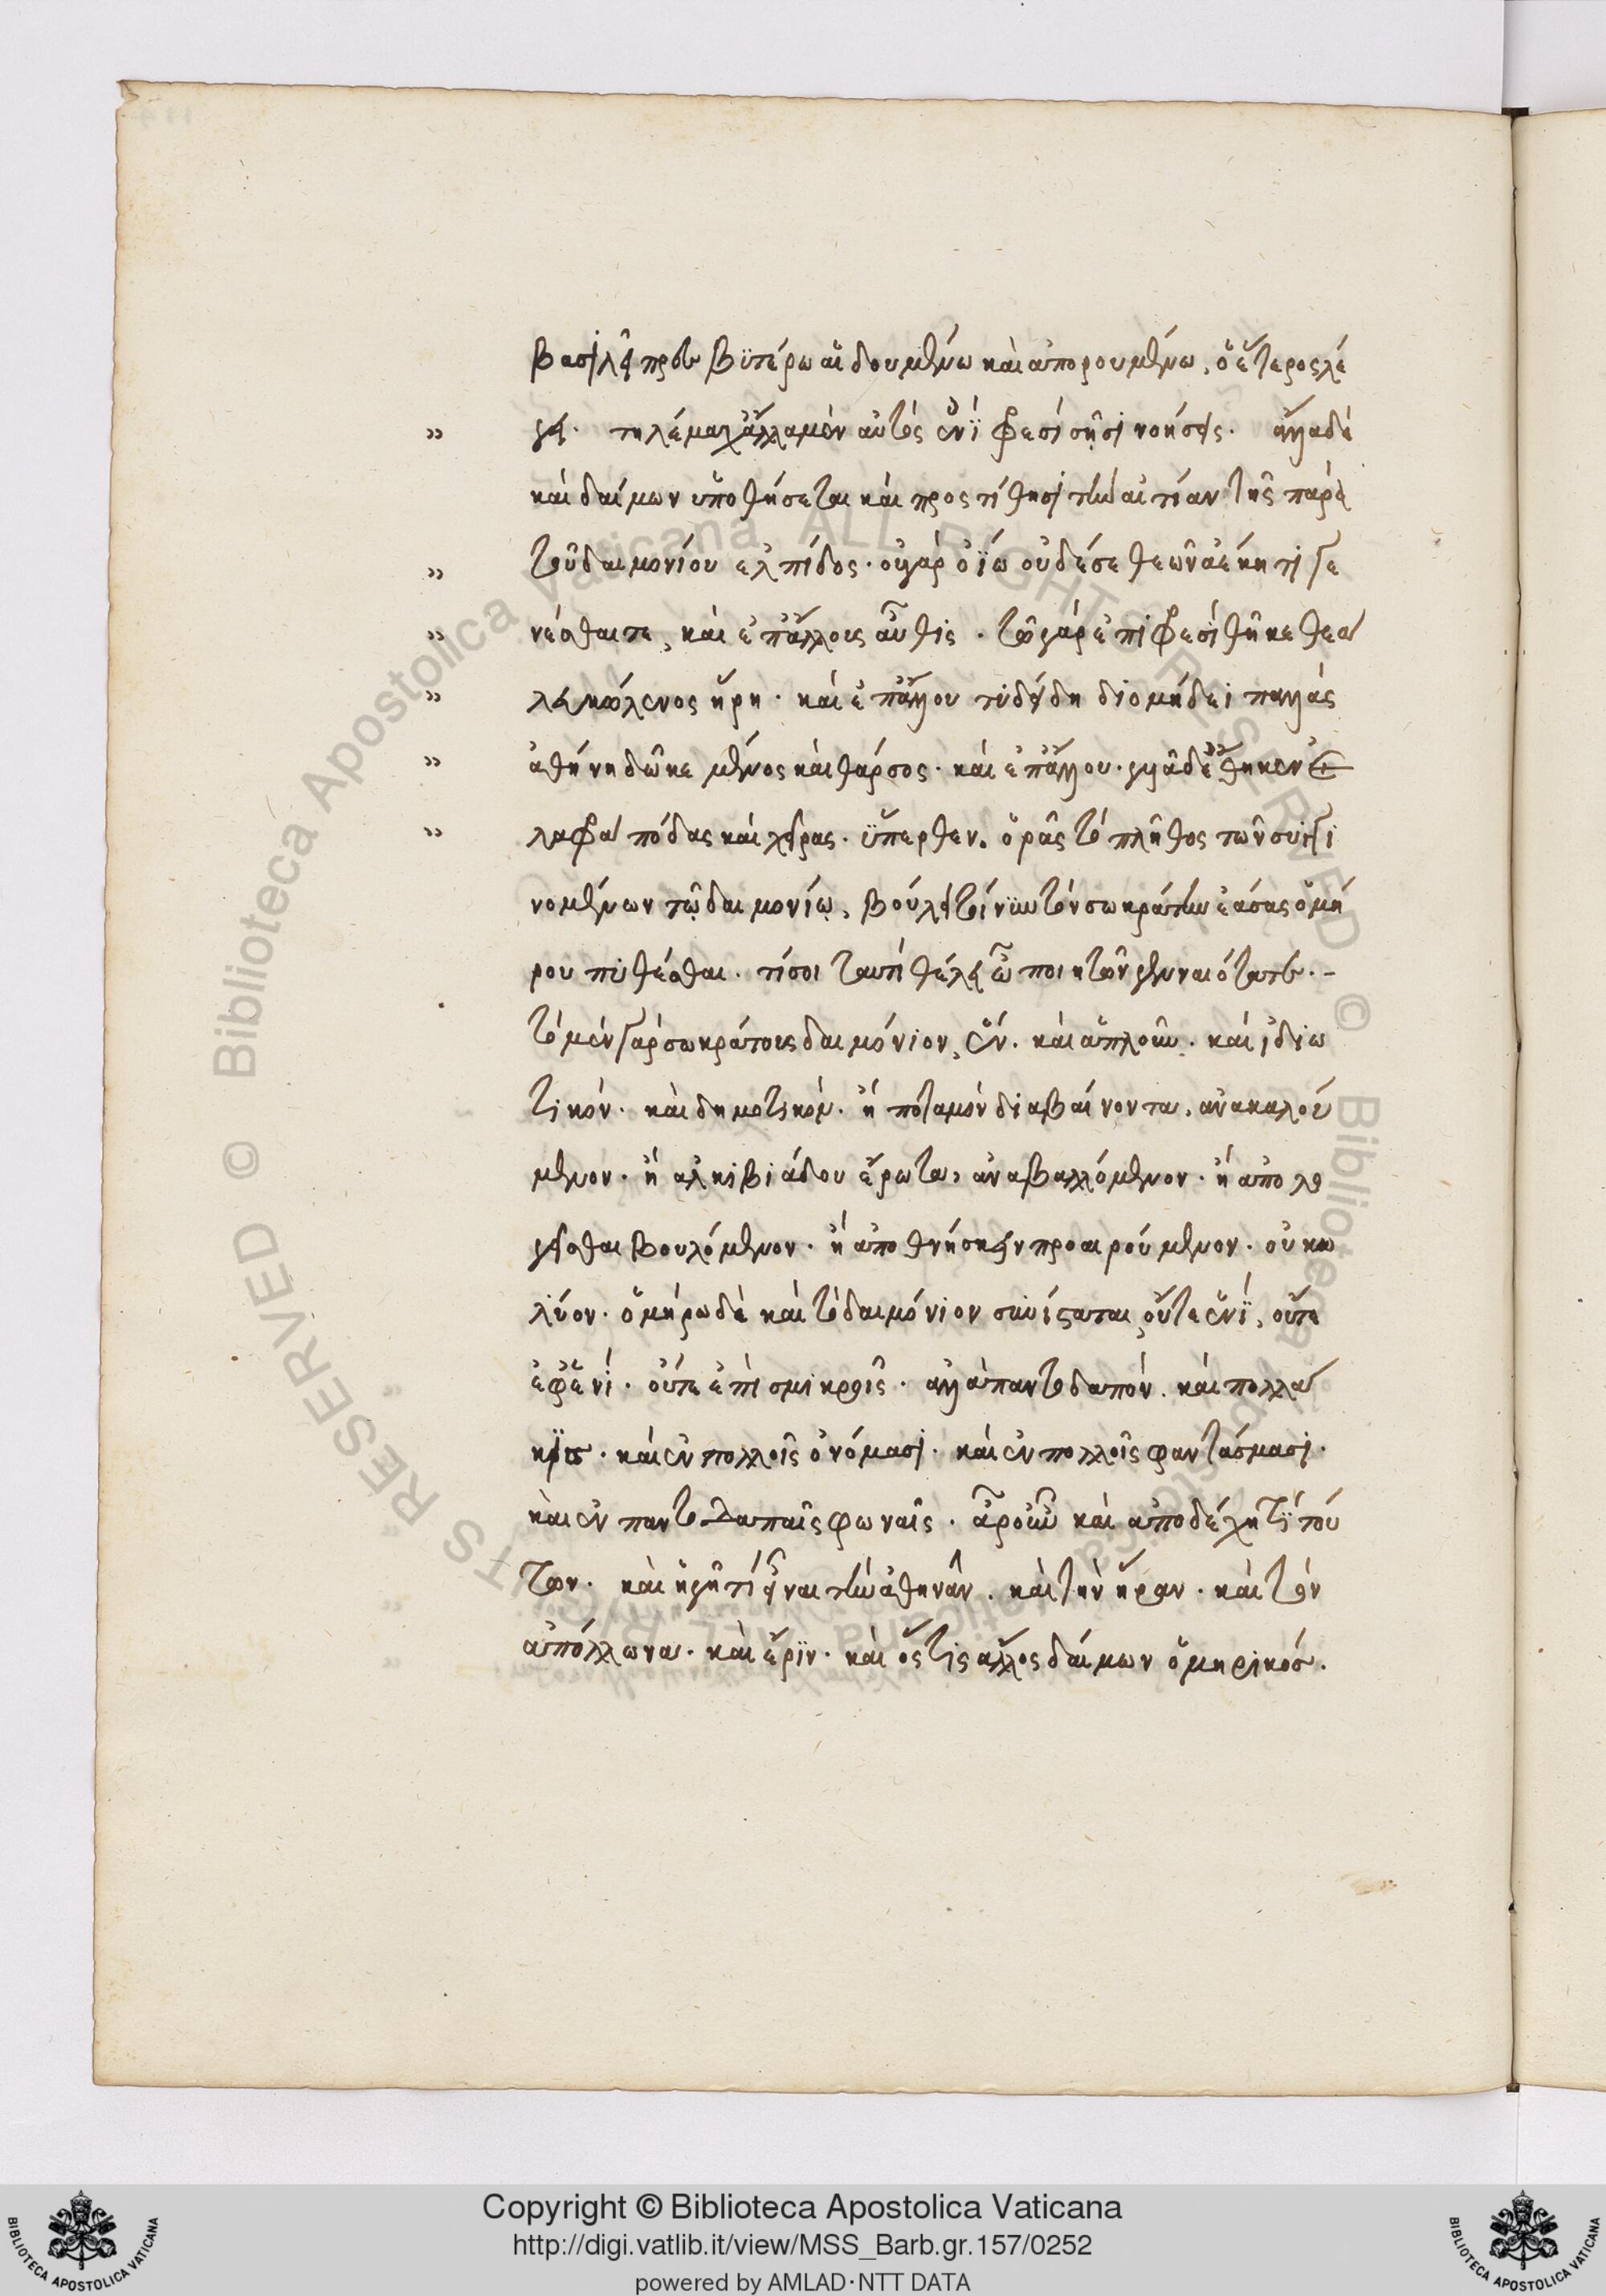 βασιλεῖ πρεσβϋτέρω αἰδουμένω καὶ ἀπορουμένω, ὁ ἕτερος λέ
γει· τηλέμαχ' ἄλλα μὲν αὐτὸς ἐνῒ φρεσὶ σῆσι νοήσεις· ἄλλα δὲ
καὶ δαίμων ὑποθήσεται καὶ προστίθησι τὴν αἰτίαν τῆς παρὰ
τοῦ δαιμονίου ἐλπίδος· οὐ γὰρ ὀΐω οὐδέ σε θεῶν ἀέκητι γε
νέσθαι τε, καὶ ἐπ' ἄλλοις αὖθις· τῶ γὰρ ἐπὶ φρεσὶ θῆκε θεὰ
λευκώλενος ἥρη· καὶ ἐπ' ἄλλου τυδείδη διομήδεϊ παλλὰς
ἀθήνη δῶκε μένος καὶ θάρσος· καὶ ἐπ' ἄλλου· γυῖα δ' ἔθηκεν ἐ
λαφρὰ πόδας καὶ χεῖρας· ὕπερθεν. ὁρᾶς τὸ πλῆθος τῶν συγγι
νομένων τῶ δαιμονίῳ, βούλει τίνϋν τὸν σωκράτην ἐάσας ὁμή
ρου πυθέσθαι· τί σοι ταυτὶ θέλει ὦ ποιητῶν γενναιότατε·-
τὸ μὲν γὰρ σωκράτους δαιμόνιον, ἕν· καὶ ἁπλοῦν· καὶ ἰδιω
τικόν· καὶ δημοτικόν· ἢ ποταμὸν διαβαίνοντα, ἀνακαλού
μενον· ἢ ἀλκιβιάδου ἔρωτα, ἀναβαλλόμενον· ἢ ἀπολο
γεῖσθαι βουλόμενον· ἢ ἀποθνήσκειν προαιρούμενον· οὐ κω
λύον· ὁμήρω δὲ καὶ τὸ δαιμόνιον συνίσταται, οὔτε ἑνῒ, οὔτε
ἐφ' ἑνὶ· οὔτε ἐπὶ σμικροῖς· ἀλλὰ παντοδαπόν· καὶ πολλά
κϊσ· καὶ ἐν πολλοῖς ὀνόμασι· καὶ ἐν πολλοῖς φαντάσμασι·
καὶ ἐν παντοδαπαῖς φωναῖς· ἆρ' οὖν καὶ ἀποδέχη τῒ τού
των· καὶ ἡγῆ τὶ εἶναι τὴν ἀθηνᾶν· καὶ τὴν ἥραν· καὶ τὸν
ἀπόλλωνα· καὶ ἔρϊν· καὶ ὅςτις ἄλλος δαίμων ὁμηρικόσ.
Copyright © Biblioteca Apostolica Vaticana
http://digi.vatlib.it/view/MSS_Barb.gr.157/0252
powered by AMLAD·NTT DATA